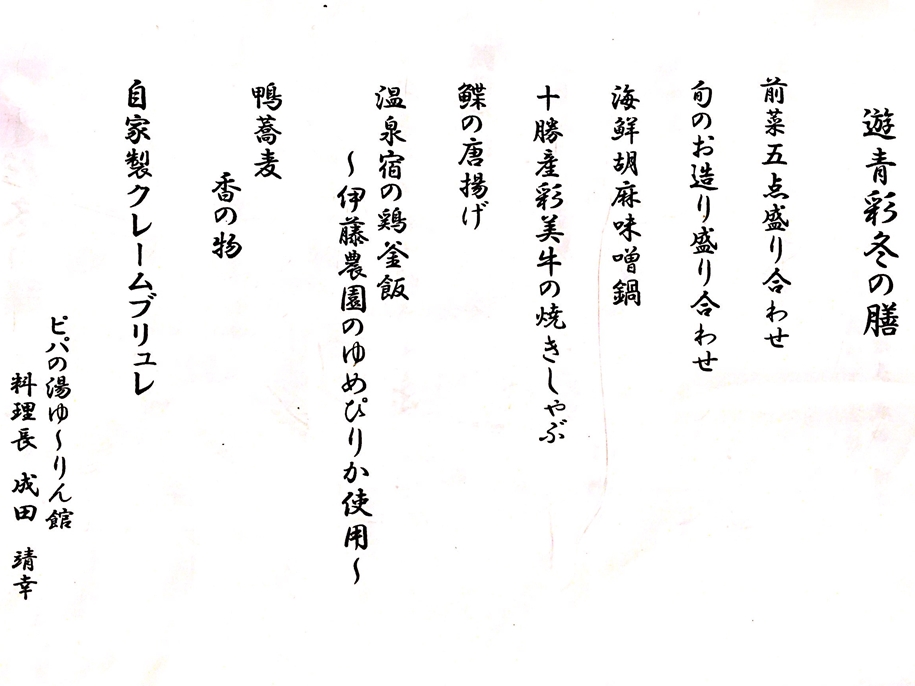 遊青彩冬の膳
前菜五点盛り合わせ
旬のお造り盛り合わせ
海鮮胡麻味噌鍋
十勝産彩美牛の焼きしゃぶ
鰈の唐揚げ
温泉宿の鶏釜飯
～伊藤農園のゆめぴりか使用～
鴨蕎麦
香の物
自家製クレームブリュレ
ピパの湯ゆ～りん館
料理長 成田 靖幸